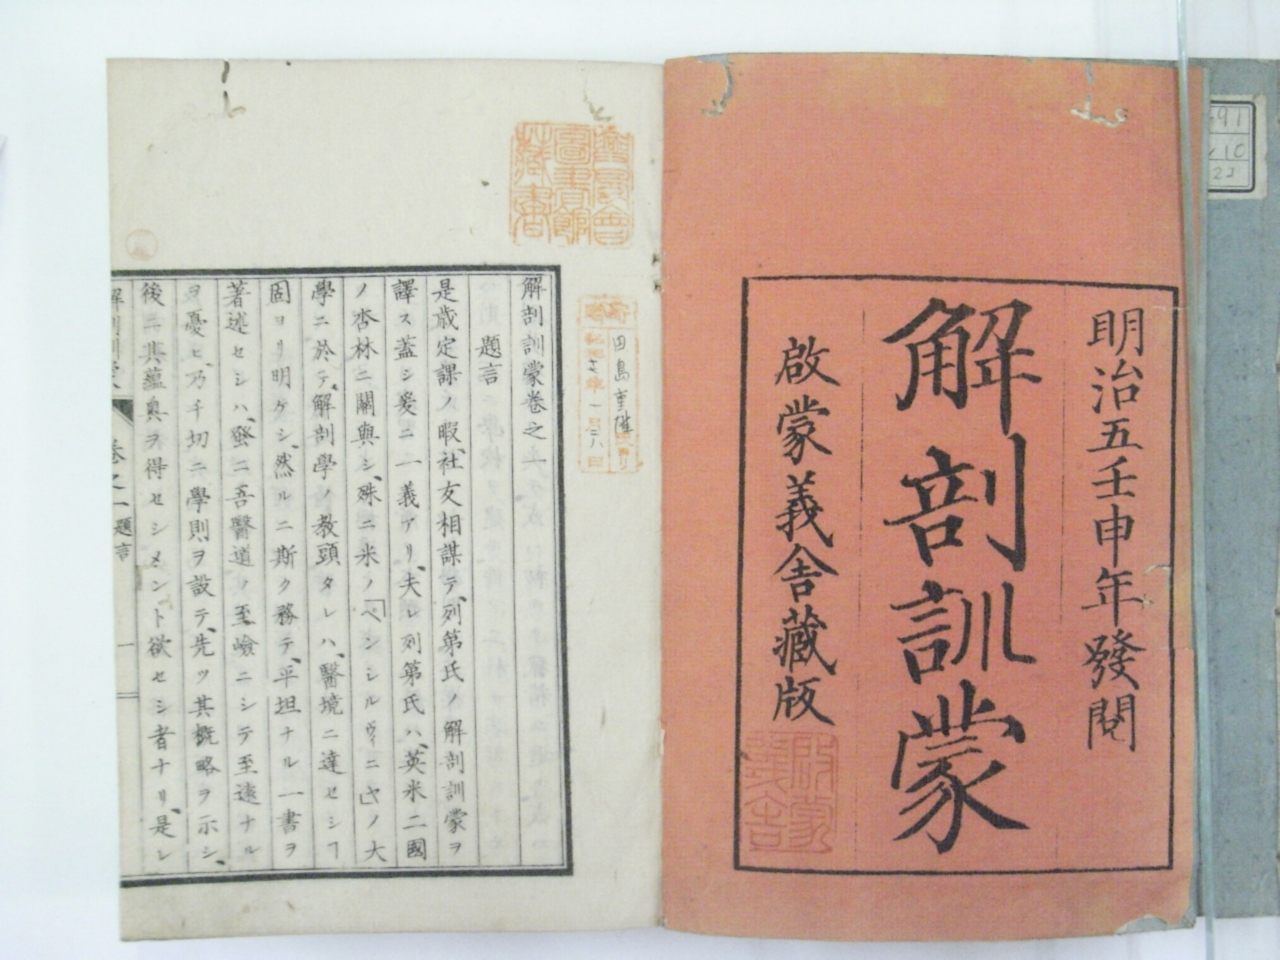 明治五壬申年發閱
解剖訓蒙
啟蒙義舍藏版
啟蒙義舍
解剖訓蒙卷之一
題言
是歳定課ノ暇、社友相謀テ、列第氏ノ解剖訓蒙ヲ
譯ス蓋シ爰ニ一義アリ、夫レ列第氏ハ、英米二國
ノ杏林ニ關與シ、殊ニ米ノ「ペンシルヴィニヤ」ノ大
學ニ於テ、解剖學ノ教頭タレハ、醫境ニ達セシヿ
固ヨリ明ケシ、然ルニ斯ク務テ、平坦ナル一書ヲ
著述セシハ、蛩ニ吾醫道ノ至嶮ニシテ至遠ナル
ヲ憂ヒ、乃千切ニ學則ヲ設テ、先ツ其概略ヲ示シ、
後ニ其蘊奥ヲ得セシメント欲セシ者ナリ、是レ
解剖訓蒙
卷之一
題言
一
圖書館
藏書